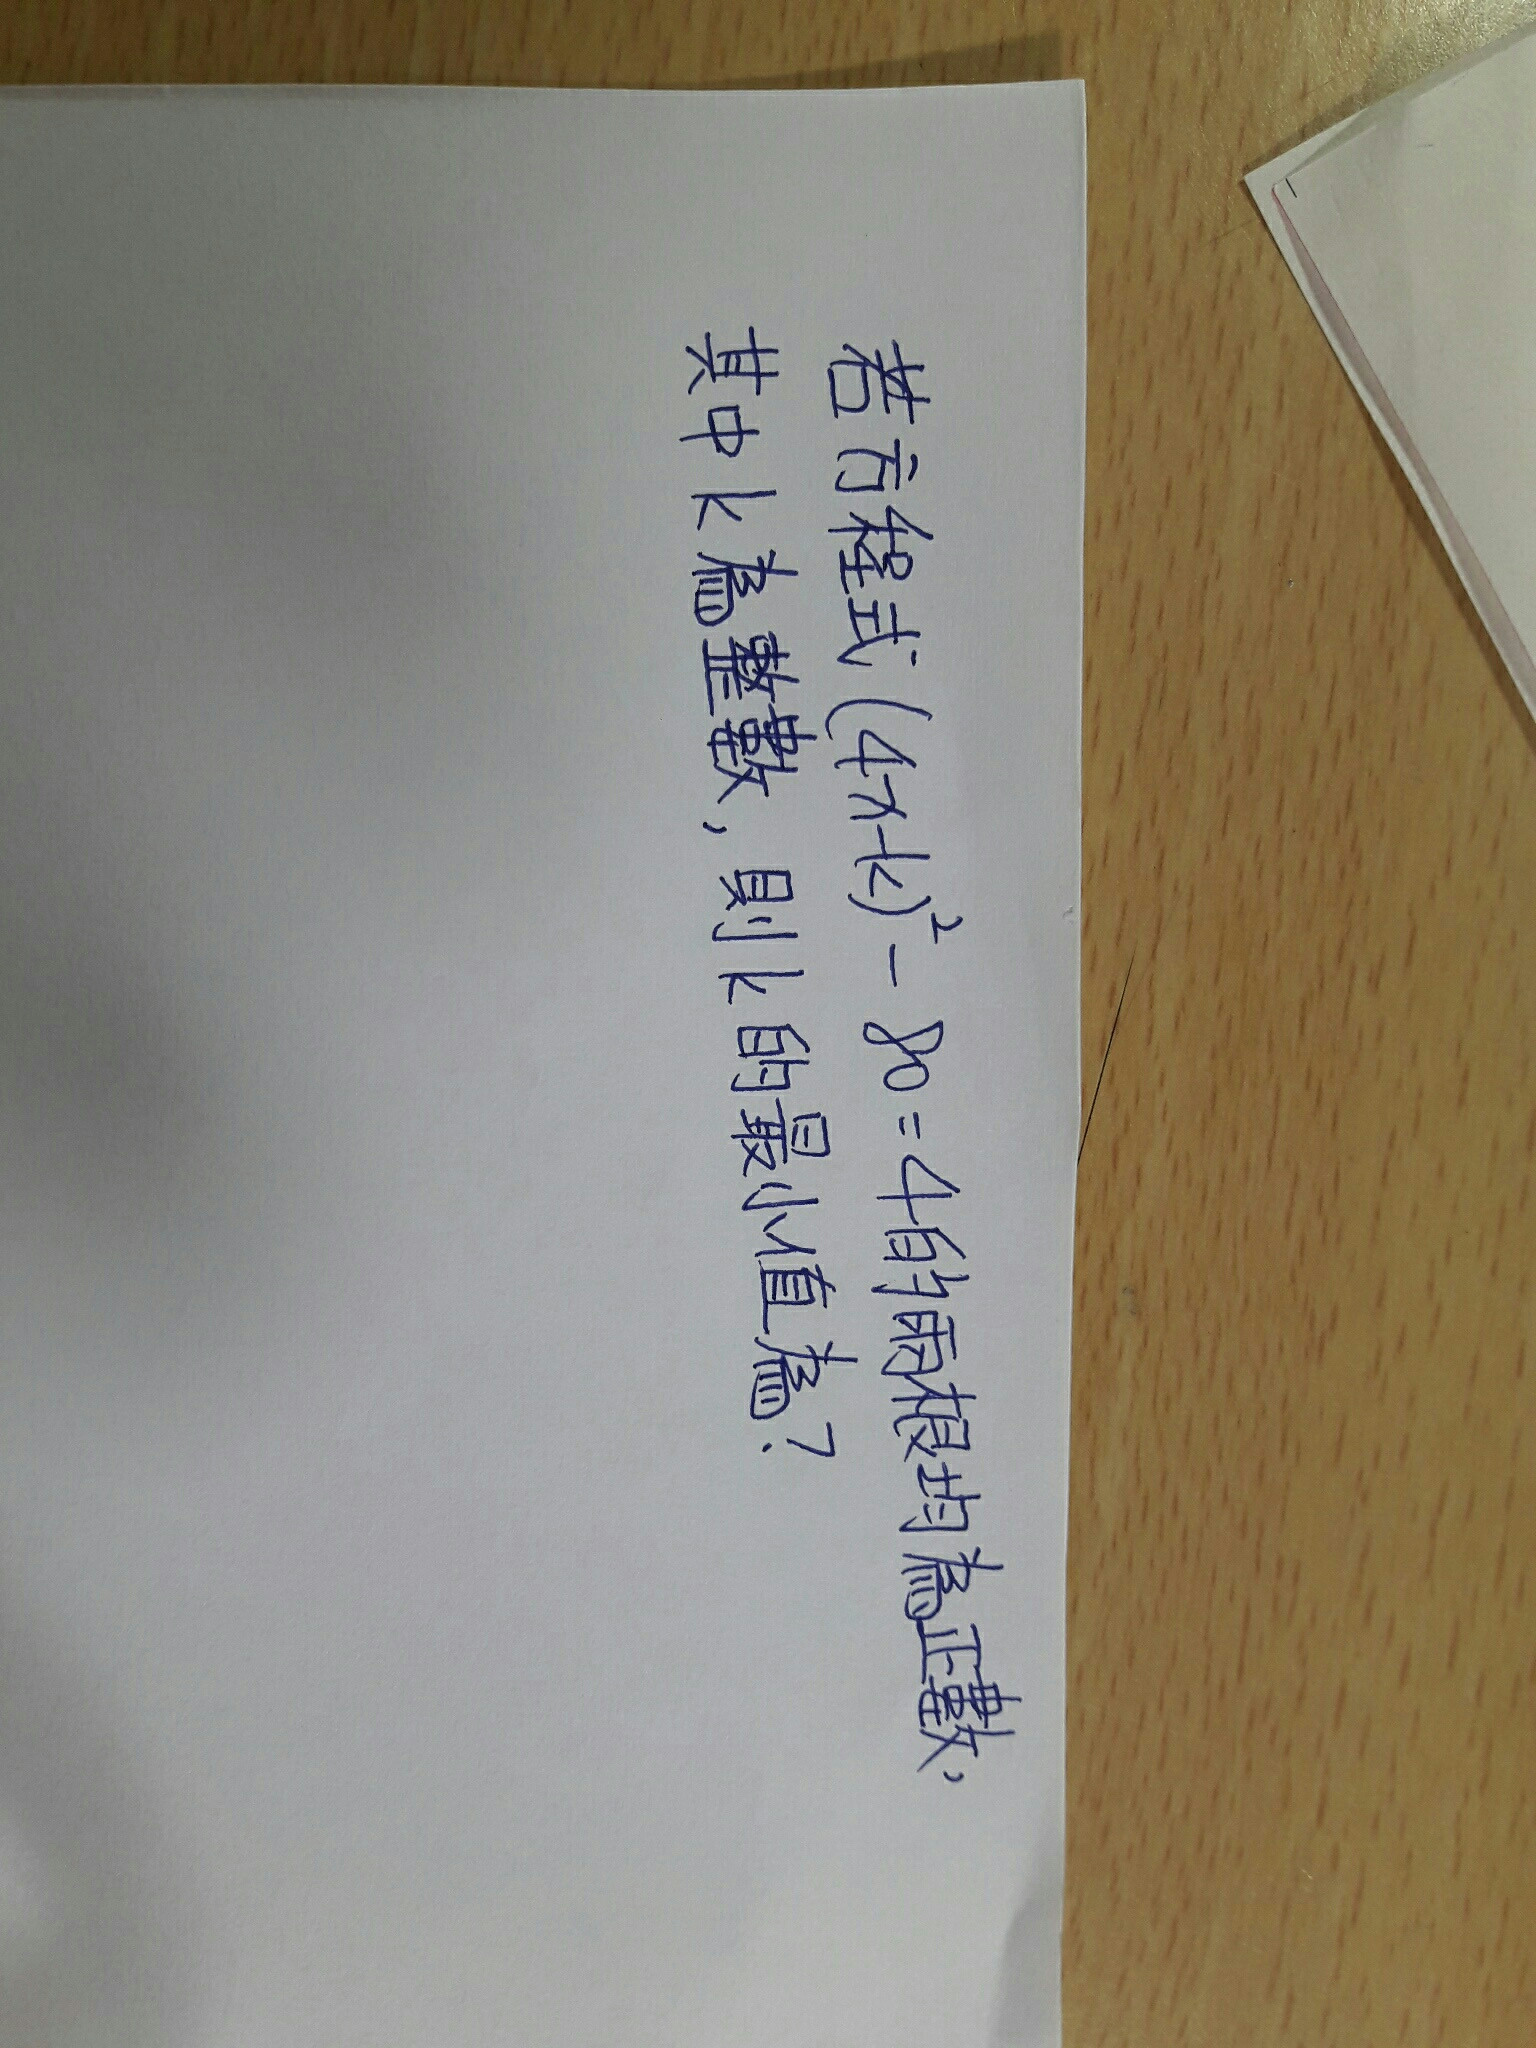 若方程式(4x-k)²-80=4的兩根均為正數,
其中k為整數,則k的最小值為?